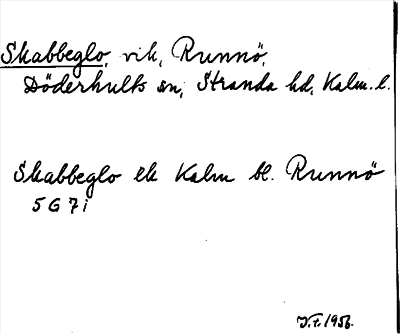 Skabbeglo, vik, Runnö,
Döderhults sn, Stranda hd, Kalm. l.
Skabbeglo ek Kalm bl. Runnö
5 G 7 i
J.F. 1956.